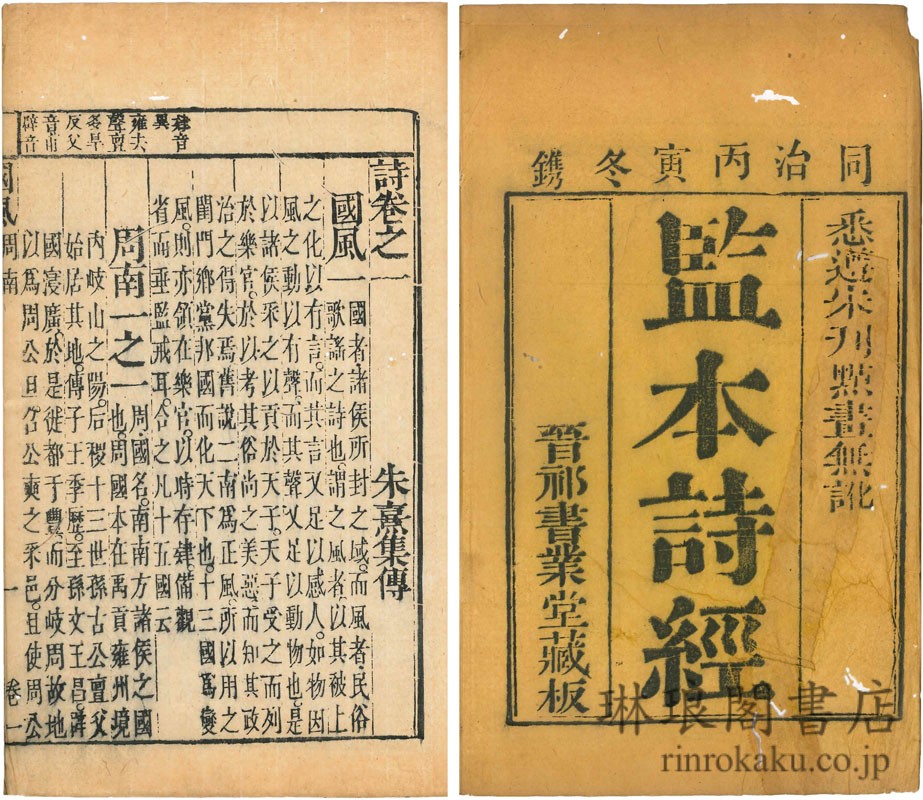 同治丙寅冬鐫
悉遵宋刊點畫無訛
監本詩經
晉祁書業堂藏板
琳琅閣書店
rinrokaku.co.jp
肄音
異
雍去
聲亶
多旱
反父
音甫
辟音
詩卷之一 朱熹集傳
國風一 國者諸侯所封之域。而風者民俗
歌謠之詩也。謂之風者以其被上
之化以有言。而其言又足以感人。如物因
風之動以有聲。而其聲又足以動物也。是
以諸侯采之以貢於天子。天子受之而列
於樂官。於以考其俗尚之美惡。而知其政
治之得失焉。舊說二南爲正風。所以用之
閨門鄉黨邦國而化天下也。十三國爲變
風。則亦領在樂官。以時存肄。備觀
省而垂監戒耳。合之凡十五國云
周南一之一 周國名。南南方諸侯之國
也。周國本在禹貢雍州境
內岐山之陽。后稷十三世孫古公亶父
始居其地。傳子王季歷。至孫文王昌。辟
國寖廣。於是徙都于豐。而分岐周故地
以爲周公旦召公奭之采邑。且使周公
國風 周南 一 卷一